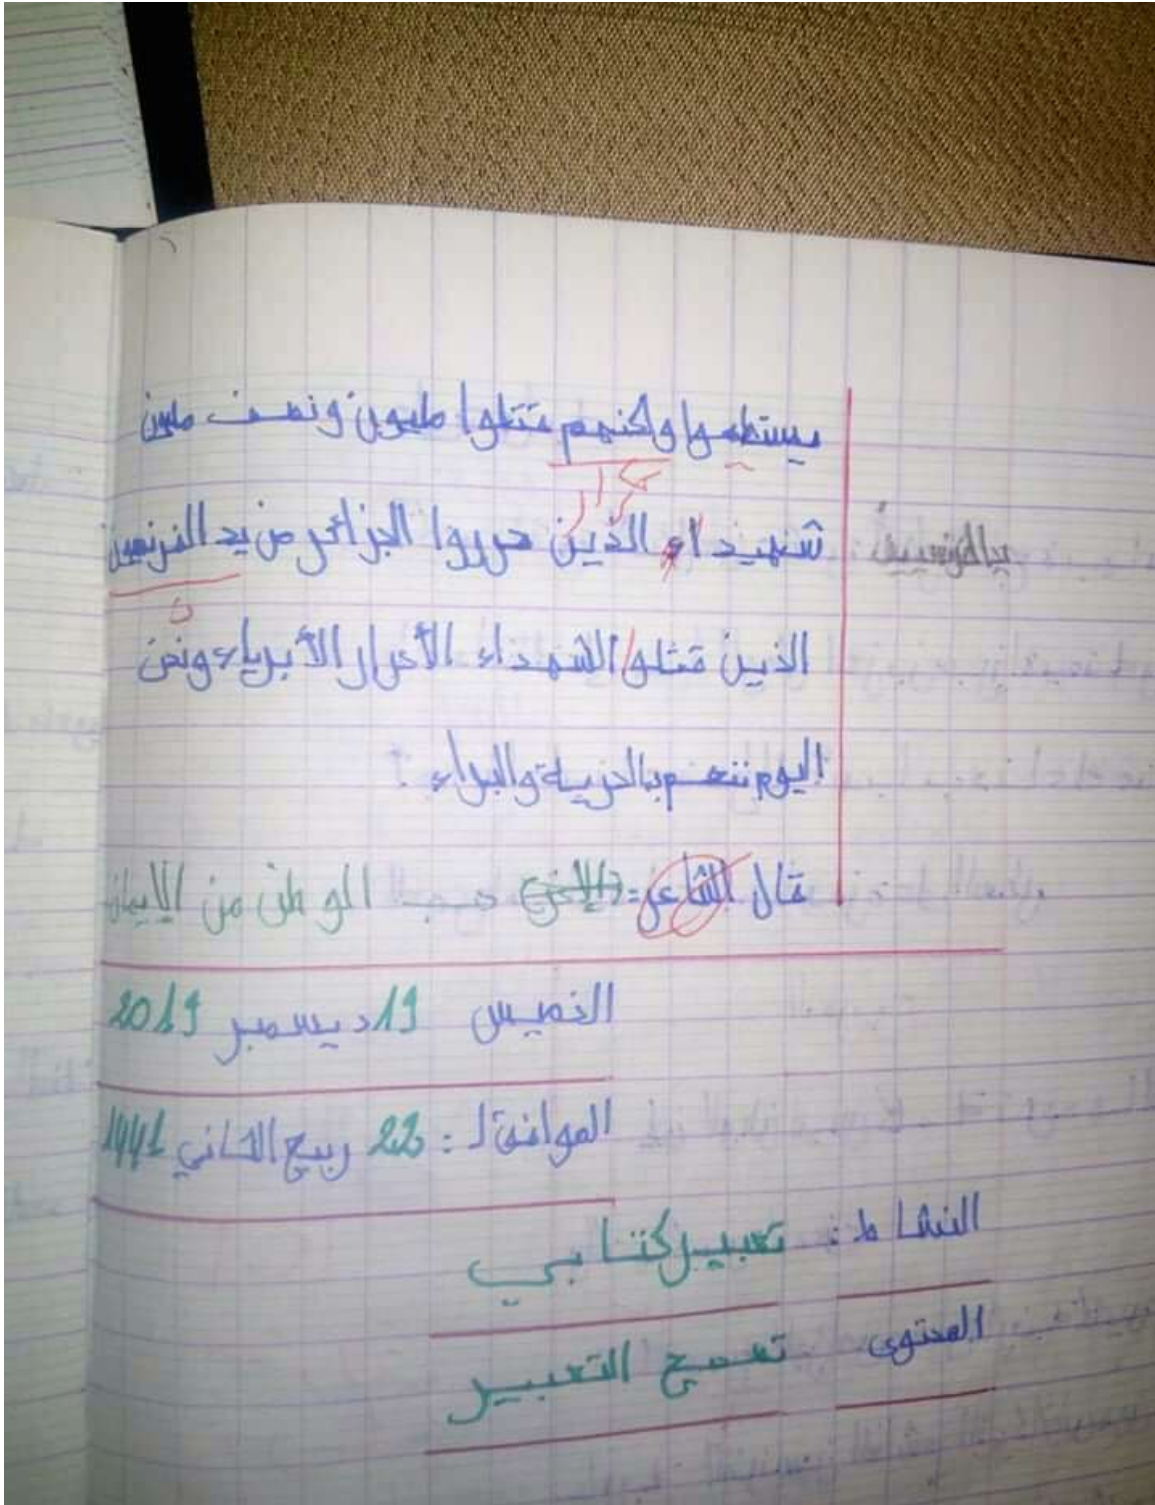 يستطعوا ولكنهم قتلوا مليون ونصف مليون
شهيداء الذين حرروا الجزائر من يد الفرنسيون
الذين قتلوا الشهداء الأحرار الأبرياء ونحن
اليوم ننعم بالحرية والبراء
قال الشاعر: حب الوطن من الإيمان
الخميس 19 ديسمبر 2019
الموافق ل: 22 ربيع الثاني 1441
النشاط: تعبير كتابي
المحتوى تصحيح التعبير